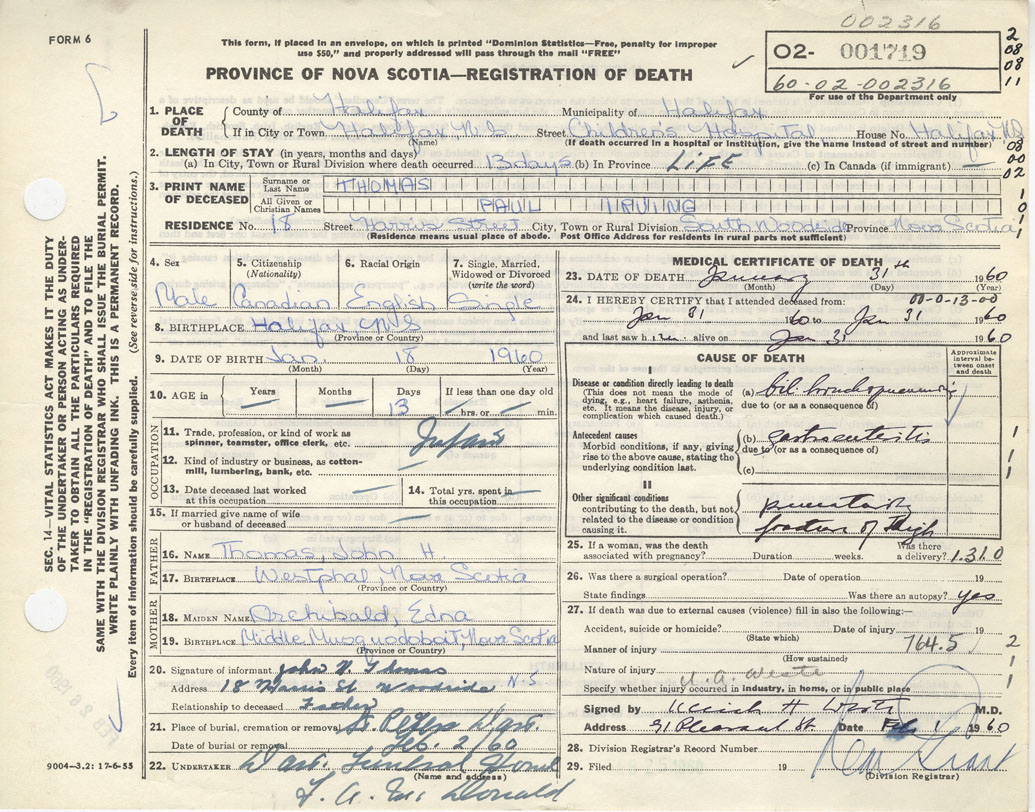 002316
FORM 6
This form, if placed in an envelope, on which is printed "Dominion Statistics—Free, penalty for improper
use $50," and properly addressed will pass through the mail "FREE"
02- 001719
60-02-002316
For use of the Department only
2
08
08
11
PROVINCE OF NOVA SCOTIA—REGISTRATION OF DEATH
1. PLACE OF DEATH
County of Halifax Municipality of Halifax
If in City or Town Halifax N.S Street Children's Hospital House No. Halifax NS
(Name) (If death occurred in a hospital or institution, give the name instead of street and number)
08
00
02
2. LENGTH OF STAY (in years, months and days)
(a) In City, Town or Rural Division where death occurred 13 days (b) In Province LIFE (c) In Canada (if immigrant) —
3. PRINT NAME OF DECEASED
Surname or Last Name THOMAS
All Given or Christian Names PAUL IRVING
1
0
1
RESIDENCE No. 18 Street Harris Street City, Town or Rural Division South Woodside Province Nova Scotia
(Residence means usual place of abode. Post Office Address for residents in rural parts not sufficient)
4. Sex Male
5. Citizenship (Nationality) Canadian
6. Racial Origin English
7. Single, Married, Widowed or Divorced (write the word) Single
8. BIRTHPLACE Halifax N.S
(Province or Country)
9. DATE OF BIRTH Jan. 18 1960
(Month) (Day) (Year)
10. AGE in Years — Months — Days 13 If less than one day old — hrs. or — min.
OCCUPATION
11. Trade, profession, or kind of work as spinner, teamster, office clerk, etc. Infant
12. Kind of industry or business, as cotton-mill, lumbering, bank, etc. —
13. Date deceased last worked at this occupation —
14. Total yrs. spent in this occupation —
15. If married give name of wife or husband of deceased —
FATHER
16. NAME Thomas, John H
17. BIRTHPLACE Westphal, Nova Scotia
(Province or Country)
MOTHER
18. MAIDEN NAME Archibald, Edna
19. BIRTHPLACE Middle Musquodoboit, Nova Scotia
(Province or Country)
20. Signature of informant John H Thomas
Address 18 Harris St Woodside N.S
Relationship to deceased Father
21. Place of burial, cremation or removal St. Peters Dart.
Date of burial or removal Feb. 2/60
22. UNDERTAKER Dart. Funeral Home
(Name and address)
F. A. Mc Donald
9004-3.2: 17-6-55
MEDICAL CERTIFICATE OF DEATH
23. DATE OF DEATH January 31th 1960
(Month) (Day) (Year)
24. I HEREBY CERTIFY that I attended deceased from: 00-0-13-00
Jan 31 1960 to Jan 31 1960
and last saw him alive on Jan 31 1960
CAUSE OF DEATH
Approximate interval between onset and death
I
Disease or condition directly leading to death
(This does not mean the mode of dying, e.g., heart failure, asthenia, etc. It means the disease, injury, or complication which caused death.)
(a) bil bronchopneumonia
due to (or as a consequence of)
Antecedent causes
Morbid conditions, if any, giving rise to the above cause, stating the underlying condition last.
(b) gastroenteritis
due to (or as a consequence of)
(c)
1
1
1
II
Other significant conditions
contributing to the death, but not related to the disease or condition causing it.
prematurity
fracture of thigh
25. If a woman, was the death associated with pregnancy? Duration weeks. Was there a delivery? 1.31.0
26. Was there a surgical operation? Date of operation 19
State findings Was there an autopsy? yes
27. If death was due to external causes (violence) fill in also the following:—
Accident, suicide or homicide? Date of injury 19
(State which)
Manner of injury 764.5
(How sustained)
2
1
1
Nature of injury
Specify whether injury occurred in industry, in home, or in public place
Signed by M.D.
Address 91 Pleasant St. Date Feb 1 1960
28. Division Registrar's Record Number
29. Filed 19
(Division Registrar)
SEC. 14—VITAL STATISTICS ACT MAKES IT THE DUTY
OF THE UNDERTAKER OR PERSON ACTING AS UNDER-
TAKER TO OBTAIN ALL THE PARTICULARS REQUIRED
IN THE "REGISTRATION OF DEATH" AND TO FILE THE
SAME WITH THE DIVISION REGISTRAR WHO SHALL ISSUE THE BURIAL PERMIT.
WRITE PLAINLY WITH UNFADING INK. THIS IS A PERMANENT RECORD.
Every item of information should be carefully supplied. (See reverse side for instructions.)
FEB 26 1960